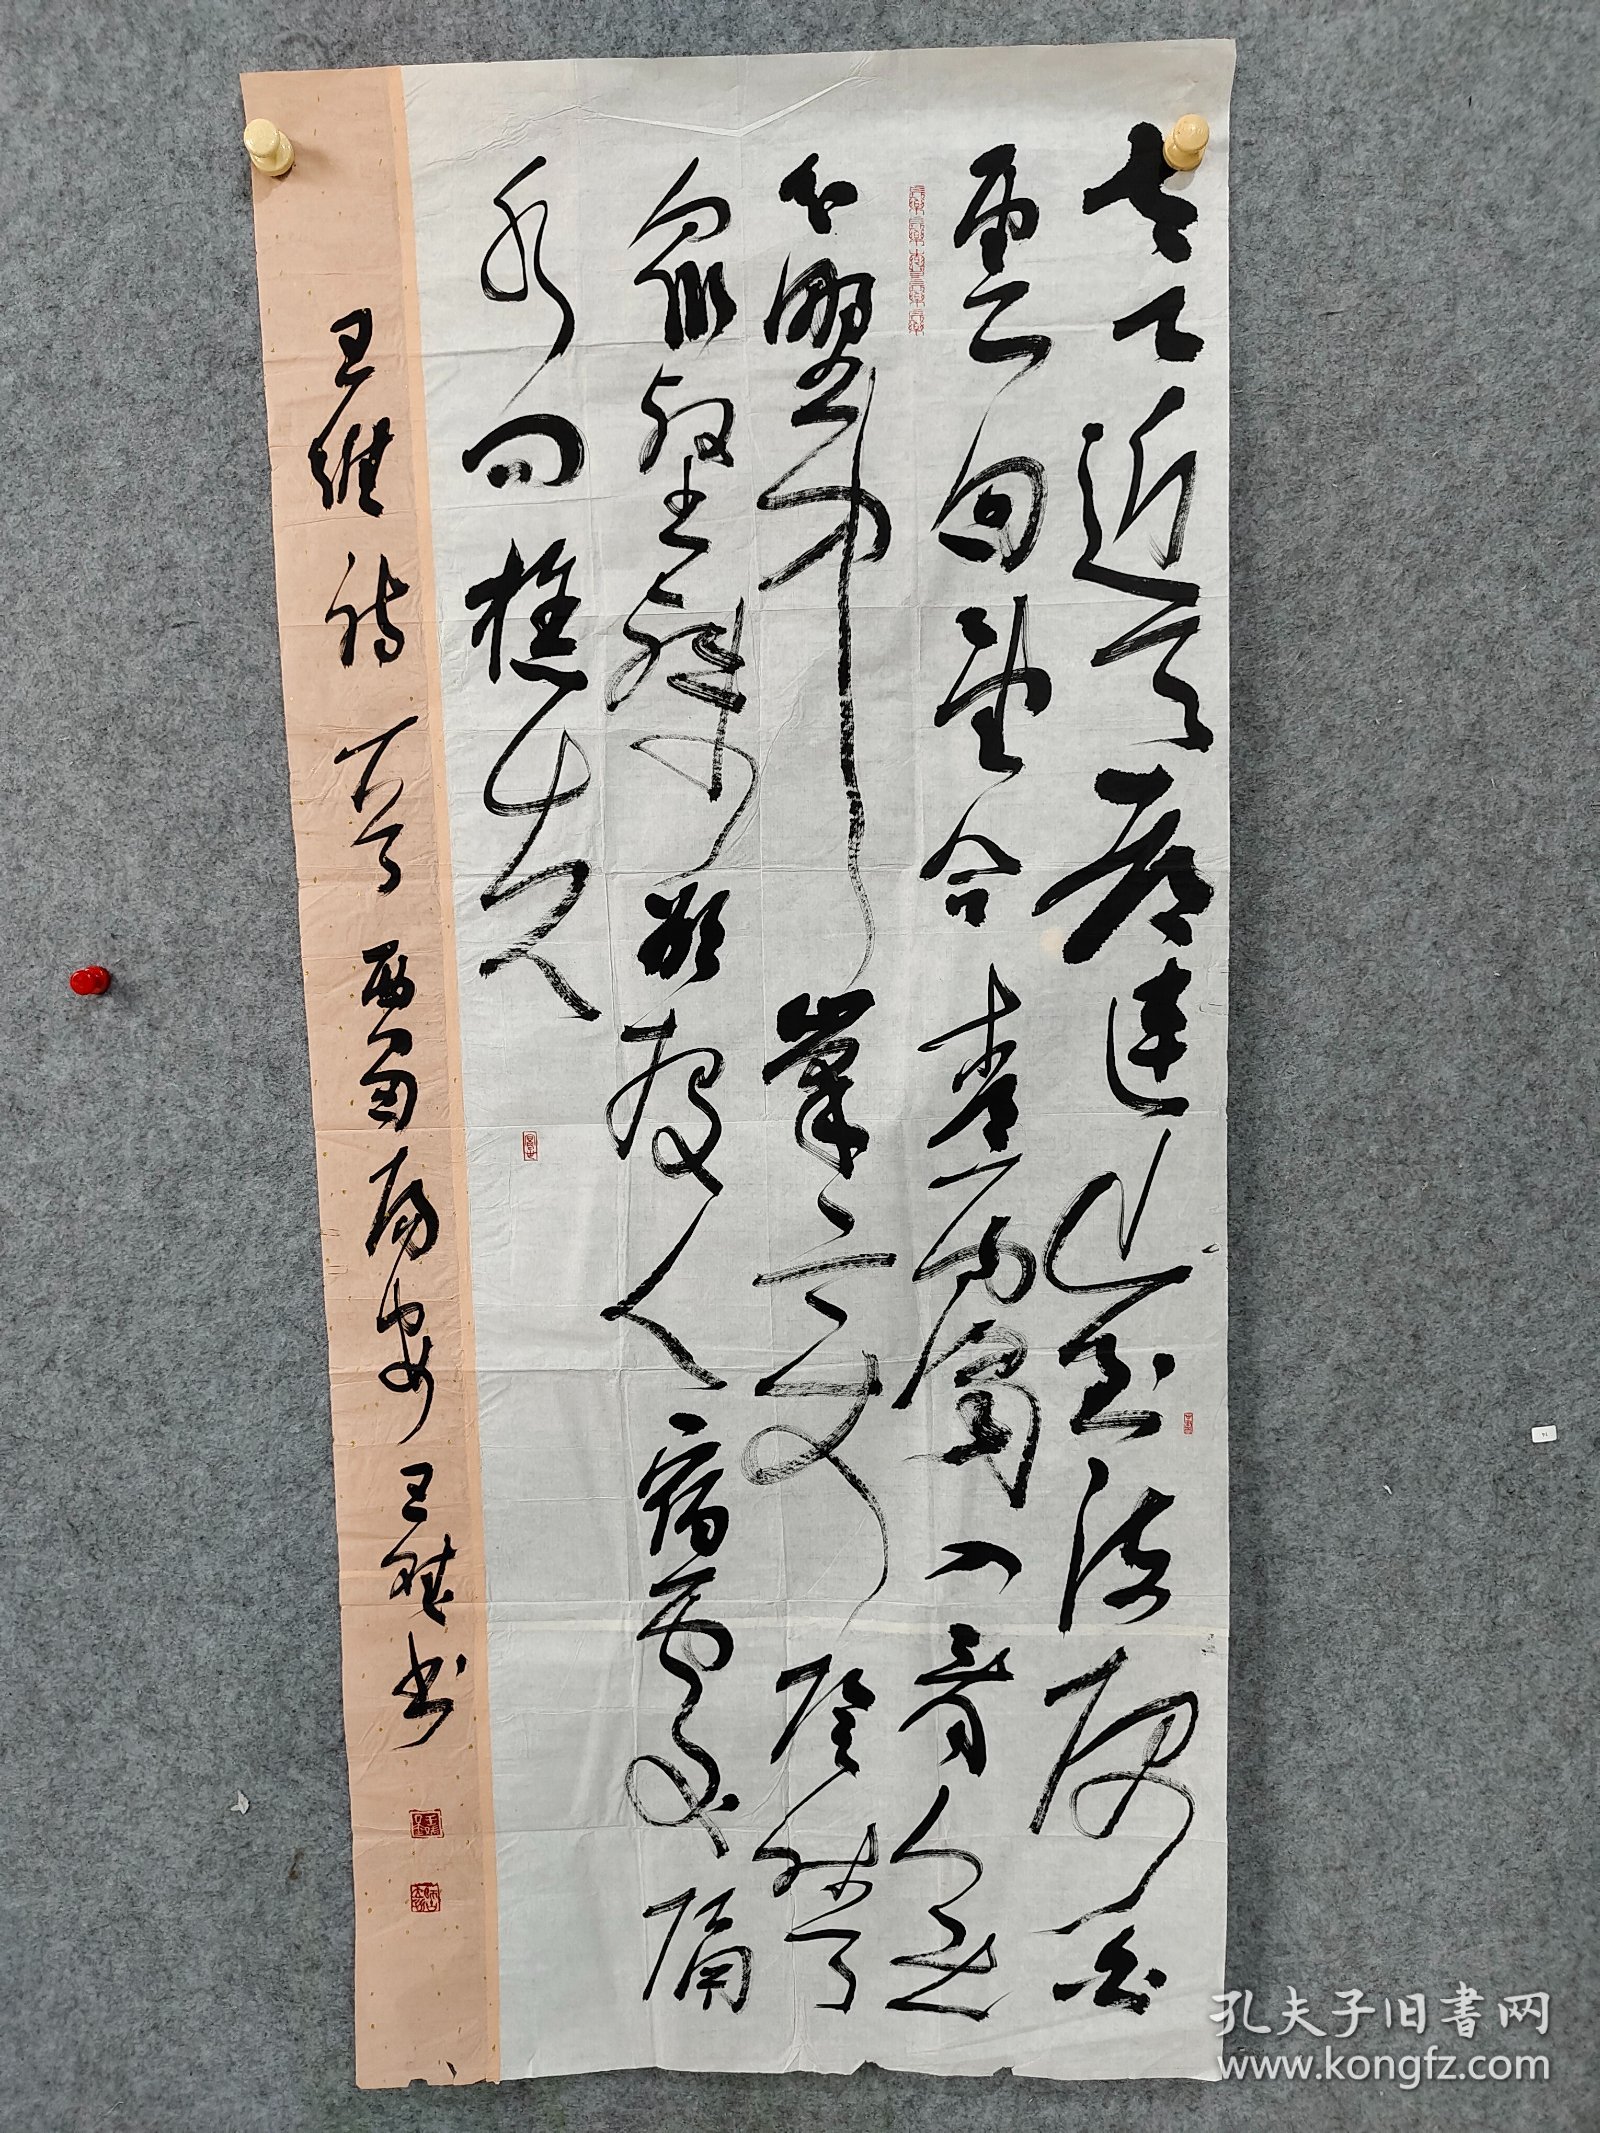 太乙近天都连山到海隅白
云回望合青霭入看无
分野中峰变阴晴
众壑殊欲投人宿处隔
水问樵夫
王维诗一首
孔夫子旧书网
www.kongfz.com